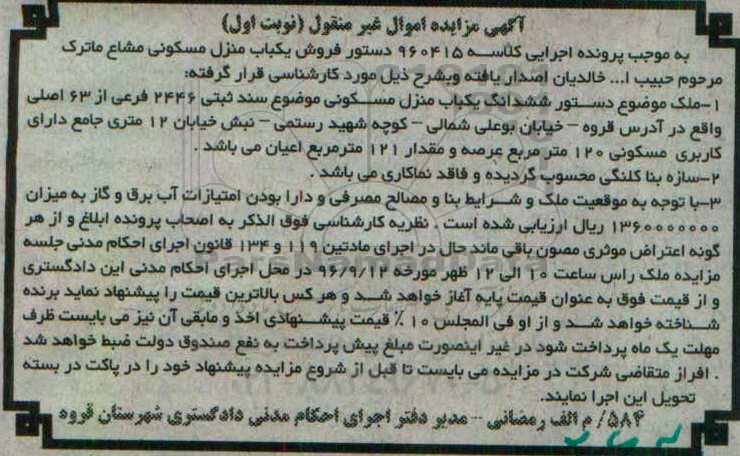 آگهی مزایده اموال غیر منقول (نوبت اول)
به موجب پرونده اجرایی کلاسه ۹۶۰۴۱۵ دستور فروش یکباب منزل مسکونی مشاع ماترک
مرحوم حبیب ا... خالدیان اصدار یافته وبشرح ذیل مورد کارشناسی قرار گرفته:
۱-ملک موضوع دستور ششدانگ یکباب منزل مسکونی موضوع سند ثبتی ۲۴۴۶ فرعی از ۶۳ اصلی
واقع در آدرس قروه – خیابان بوعلی شمالی – کوچه شهید رستمی – نبش خیابان ۱۲ متری جامع دارای
کاربری مسکونی ۱۲۰ متر مربع عرصه و مقدار ۱۲۱ مترمربع اعیان می باشد .
۲-سازه بنا کلنگی محسوب گردیده و فاقد نماکاری می باشد .
۳-با توجه به موقعیت ملک و شرایط بنا و مصالح مصرفی و دارا بودن امتیازات آب برق و گاز به میزان
۱۳۶۰۰۰۰۰۰۰ ریال ارزیابی شده است . نظریه کارشناسی فوق الذکر به اصحاب پرونده ابلاغ و از هر
گونه اعتراض موثری مصون باقی ماند حال در اجرای مادتین ۱۱۹ و ۱۳۴ قانون اجرای احکام مدنی جلسه
مزایده ملک راس ساعت ۱۰ الی ۱۲ ظهر مورخه ۹۶/۹/۱۲ در محل اجرای احکام مدنی این دادگستری
و از قیمت فوق به عنوان قیمت پایه آغاز خواهد شد و هر کس بالاترین قیمت را پیشنهاد نماید برنده
شناخته خواهد شد و از او فی المجلس ۱۰ ٪ قیمت پیشنهادی اخذ و مابقی آن نیز می بایست ظرف
مهلت یک ماه پرداخت شود در غیر اینصورت مبلغ پیش پرداخت به نفع صندوق دولت ضبط خواهد شد
. افراز متقاضی شرکت در مزایده می بایست تا قبل از شروع مزایده پیشنهاد خود را در پاکت در بسته
تحویل این اجرا نمایند.
۵۸۴/ م الف رمضانی – مدیر دفتر اجرای احکام مدنی دادگستری شهرستان قروه